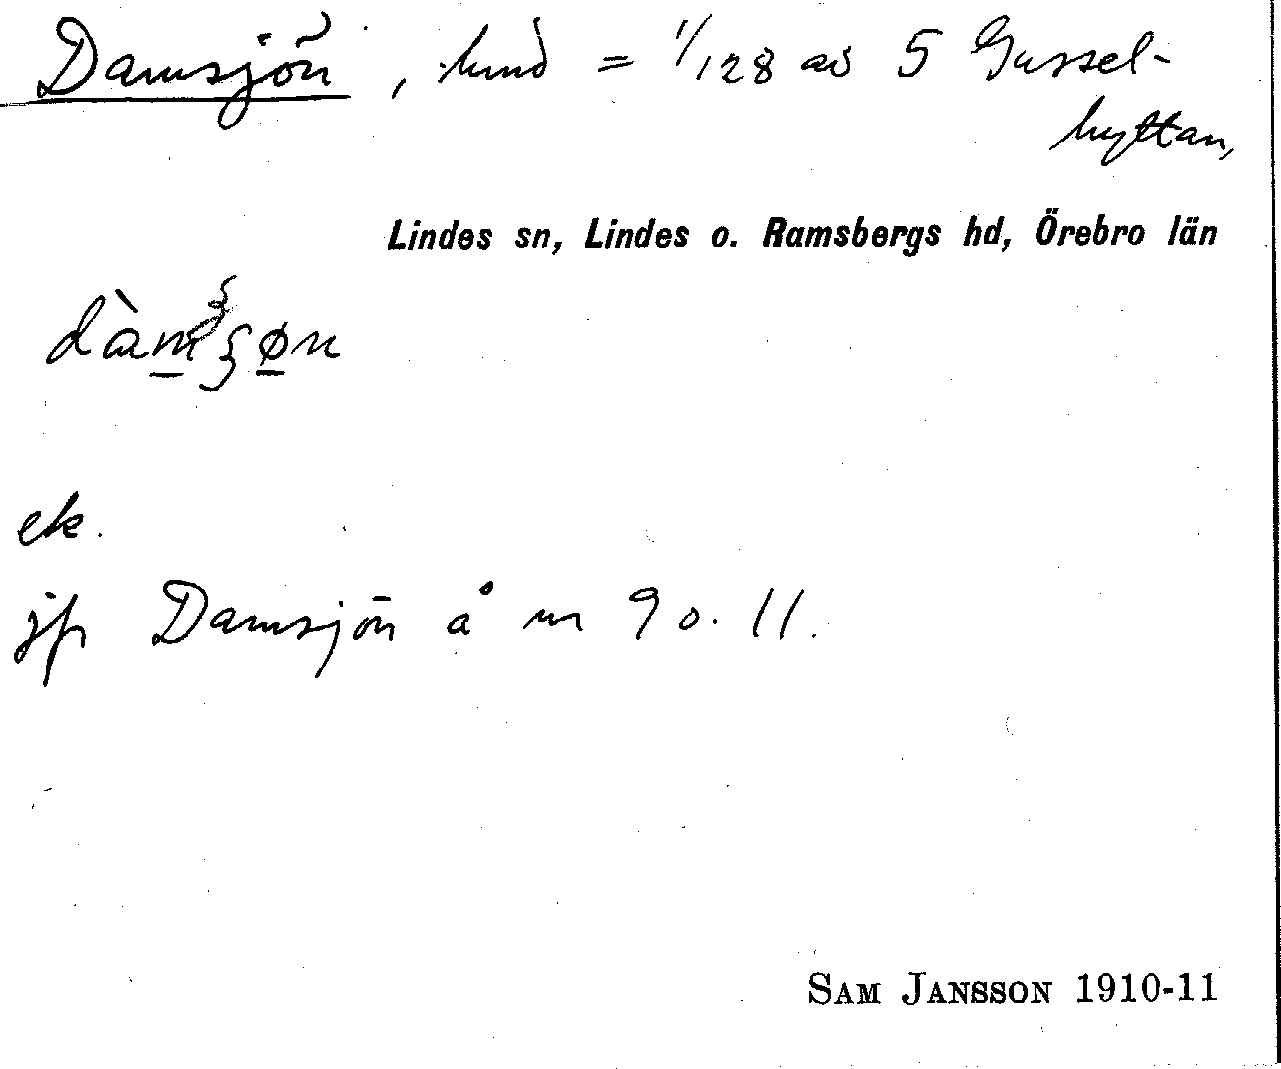 Damsjön, hmd = 1/128 av 5 Gussel-
hyttan,
Lindes sn, Lindes o. Ramsbergs hd, Örebro län
ek.
jfr Damsjön å nr 90. 11.
SAM JANSSON 1910-11